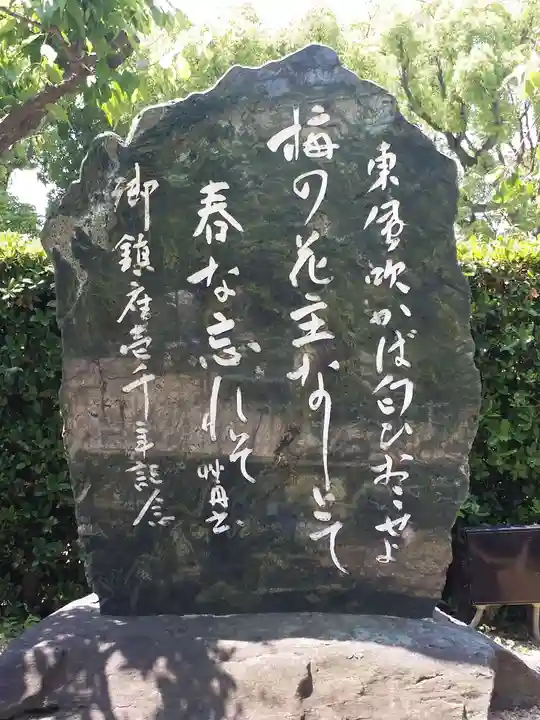 東風吹かば匂ひおこせよ
梅の花主なしとて
春な忘れそ
御鎮座壱千年記念